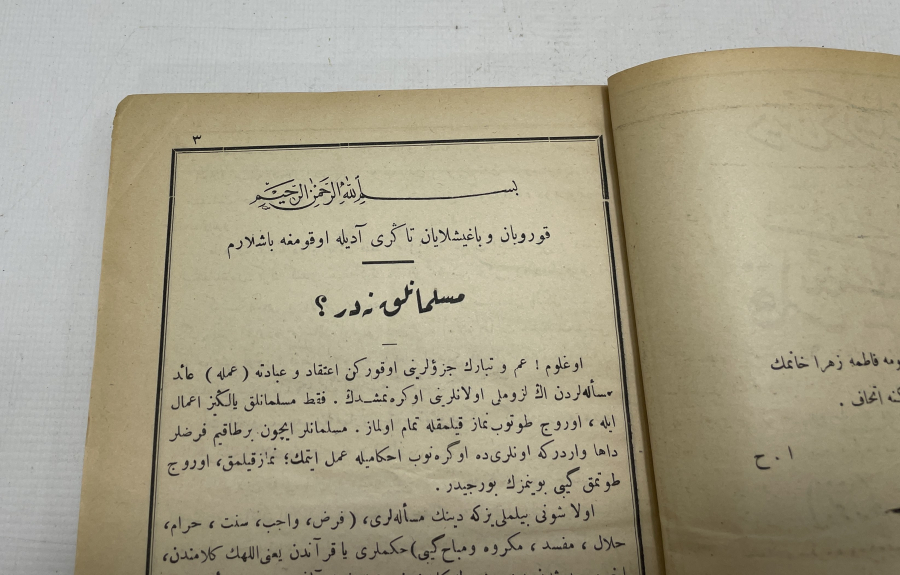 ٣
بسم الله الرحمن الرحيم
قوروبان و باغیشلایان تاڭری آدیله اوقومغه باشلارم
مسلمانلق نه در ؟
اوغلوم ! عم و تبارك جزؤلرینی اوقوركن اعتقاد و عبادته ( عمله ) عائد
مسأله‌لردن اڭ لزوملی اولانلرینی اوكره‌نمشدڭ . فقط مسلمانلق یالڭز اعمال
ایله ، اوروج طوتوب نماز قیلمقله تمام اولماز . مسلمانلر ایچون برطاقیم فرضلر
داها واردركه اونلری‌ده اوگره‌نوب احكامیله عمل ایتمك؛ نماز قیلمق، اوروج
طوتمق گبی بوینمزك بورجیدر .
اولا شونی بیلملی‌یزكه دینك مسأله‌لری، ( فرض، واجب، سنت ، حرام،
حلال ، مفسد ، مكروه ومباح گبی ) حكملری یا قرآندن یعنی اللهك كلامندن،
فاطمه زهرا خانمك
اتحاف .
ا . ح